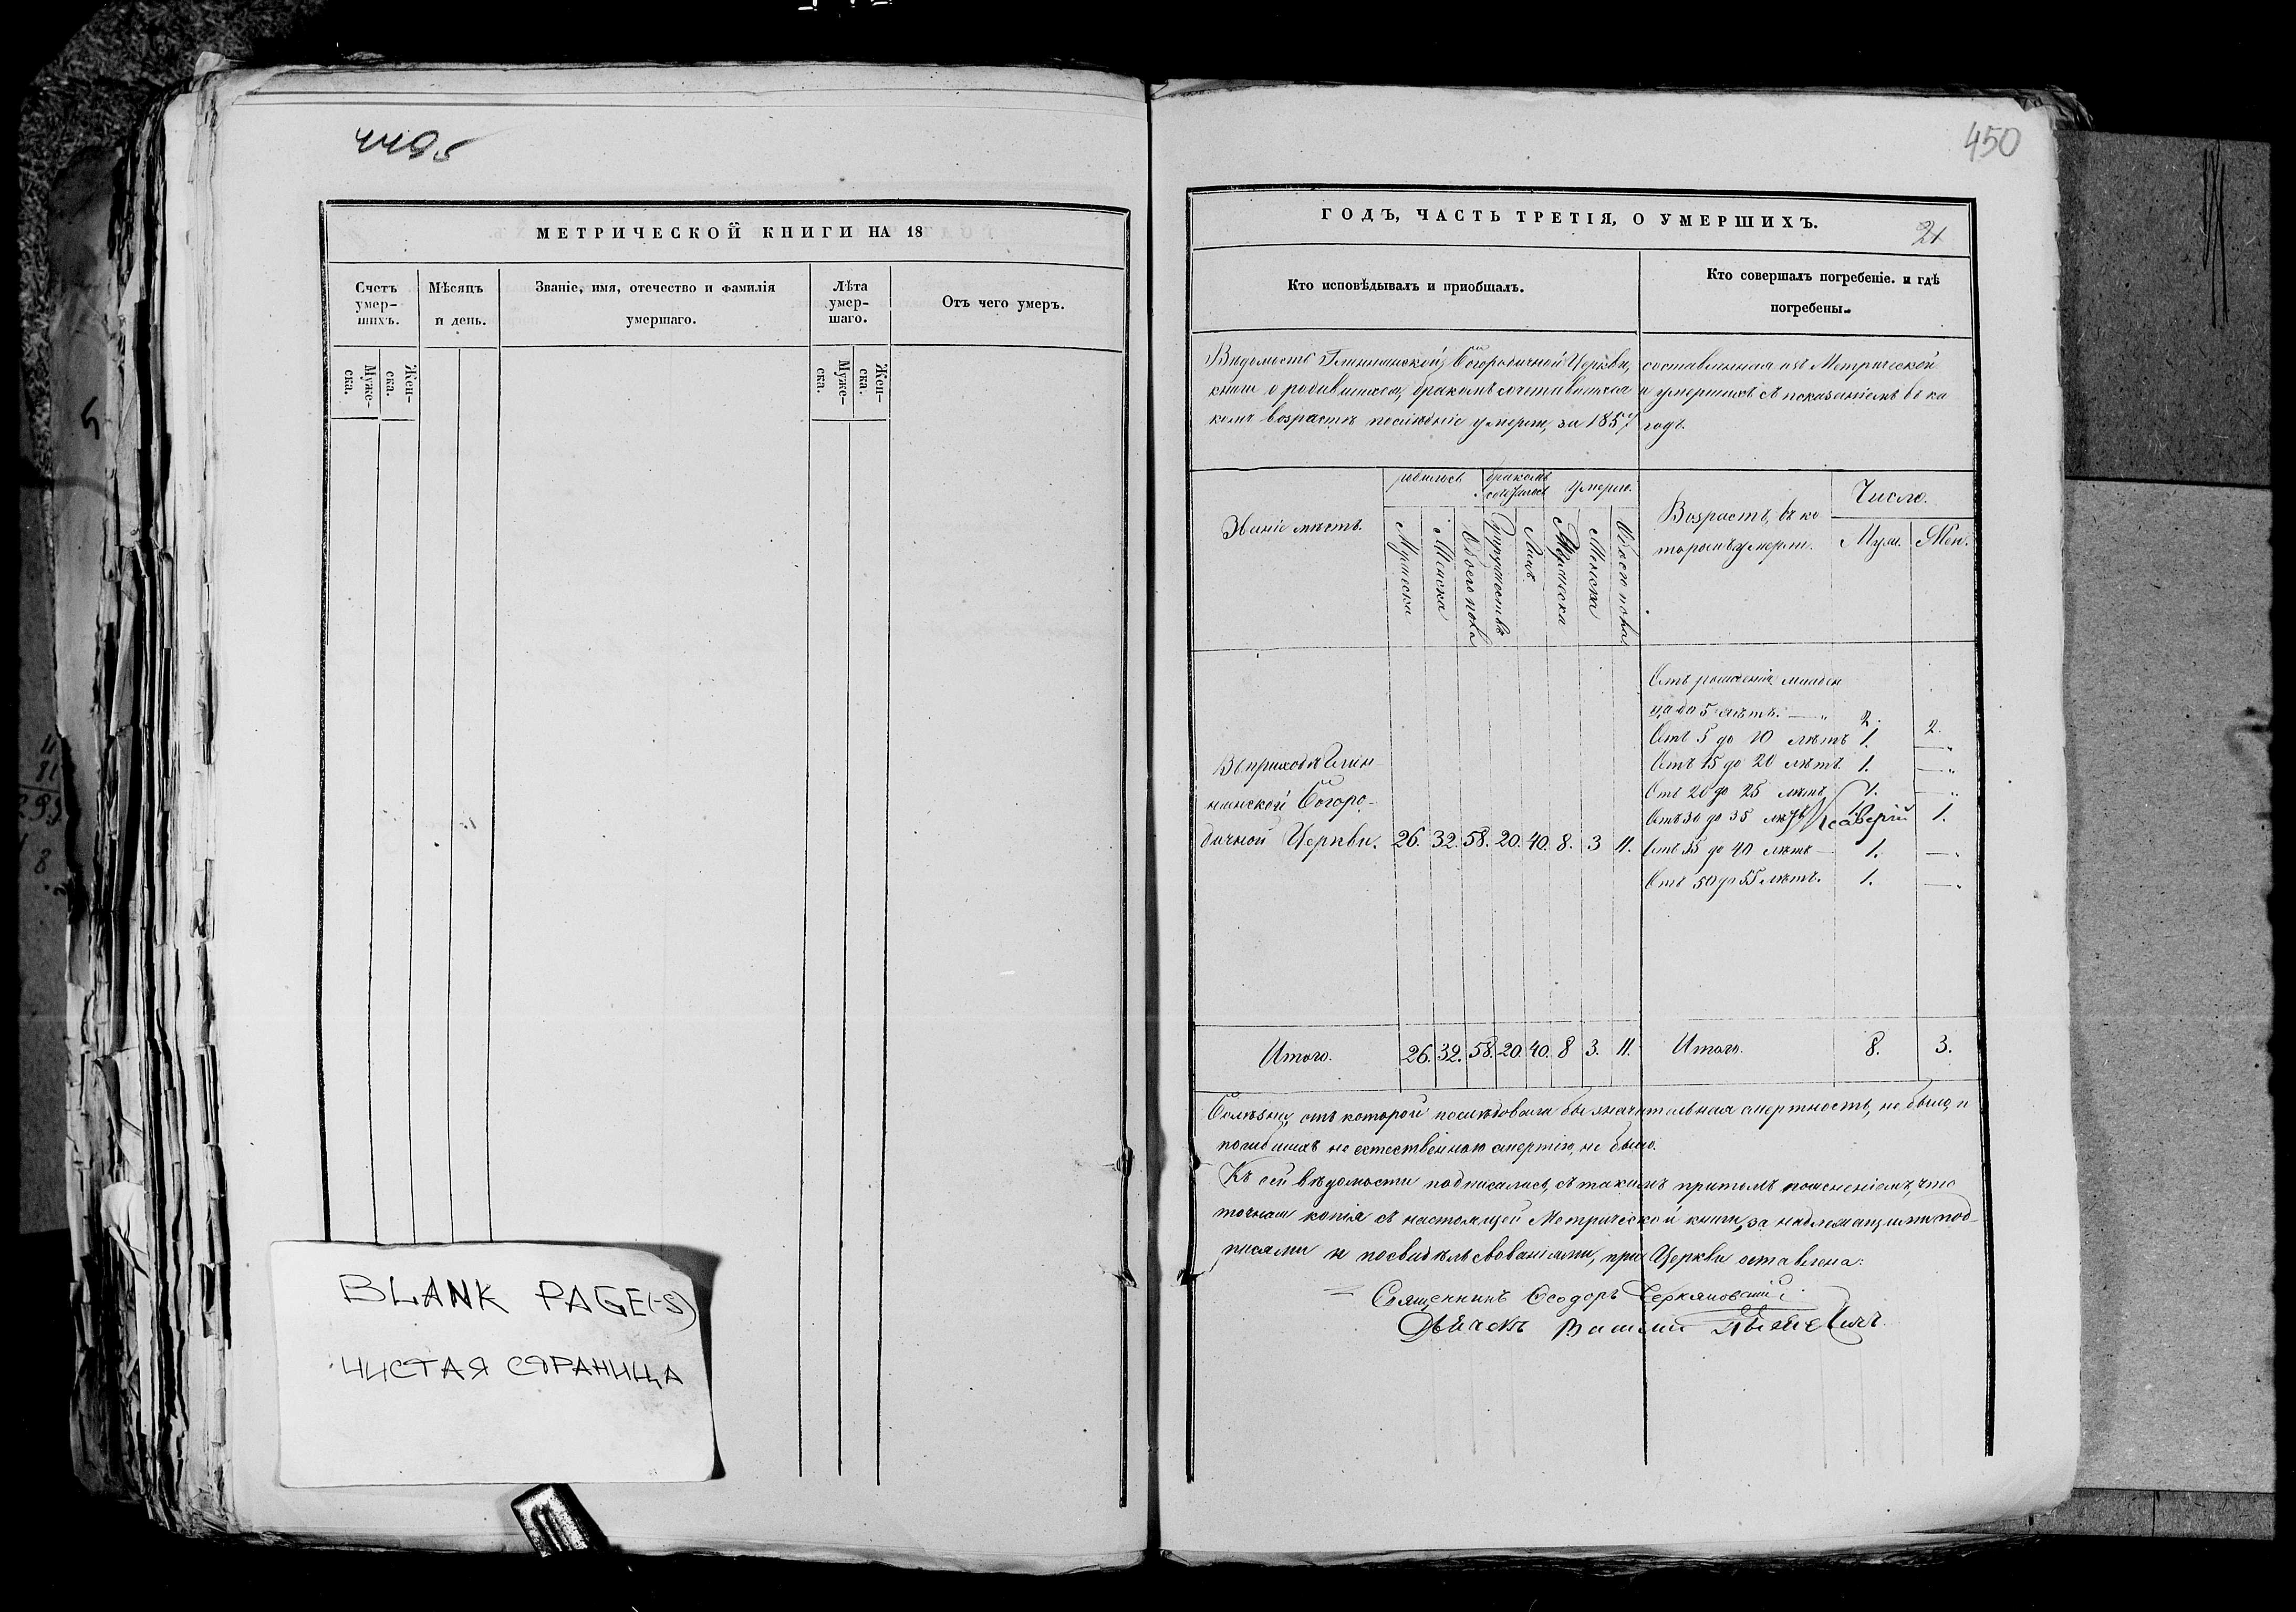 4495
МЕТРИЧЕСКОЙ КНИГИ НА 18
Счетъ умер-шихъ.
Мѣсяцъ и день.
Званіе, имя, отечество и фамилія умершаго.
Лѣта умер-шаго.
Отъ чего умеръ.
Муже-ска.
Жен-ска.
Муже-ска.
Жен-ска.
BLANK PAGE(-S)
ЧИСТАЯ СТРАНИЦА
450
ГОДЪ, ЧАСТЬ ТРЕТІЯ, О УМЕРШИХЪ.
21
Кто исповѣдывалъ и пріобщалъ.
Кто совершалъ погребеніе. и гдѣ погребены.
Вѣдомость Богородичной Церкви, составленная изъ Метрической
книги о родившихся, бракомъ сочетавшихся и умершихъ съ показаніемъ въ ка
комъ возрастѣ послѣдніе умерли, за 1857 годъ.
Званіе мѣстъ.
родилось
бракомъ
умерло.
Возрастъ, въ ко
торомъ умерли.
Число.
Муж. Жен.
Мужеска
Женска
Обоего пола
Супружествъ
Лицъ
Мужеска
Женска
Обоего пола
Отъ рожденія младен
ца до 5 лѣтъ. — 2. 2.
Отъ 5 до 10 лѣтъ 1. —
Отъ 15 до 20 лѣтъ 1. —
Отъ 20 до 25 лѣтъ 1. —
Отъ 30 до 35 лѣтъ 1.
Отъ 35 до 40 лѣтъ — 1. —
Отъ 50 до 55 лѣтъ. 1. —
Въ приходѣ Глин
нянской Богоро-
дичной Церкви. 26. 32. 58. 20. 40. 8. 3 11.
Итого. 26. 32. 58. 20. 40. 8 3. 11. Итого. 8. 3.
Болѣзни, отъ которой послѣдовала бы значительная смертность, не было, и
погибшихъ не естественною смертію, не было.
Къ сей вѣдомости подписались, съ такимъ притомъ поясненіемъ, что
точная копія съ настоящей Метрической книги, за надлежащими под-
писями и посвидѣтельствованіями, при Церкви оставлена:
Священникъ Ѳеодоръ
Дьячокъ Василій